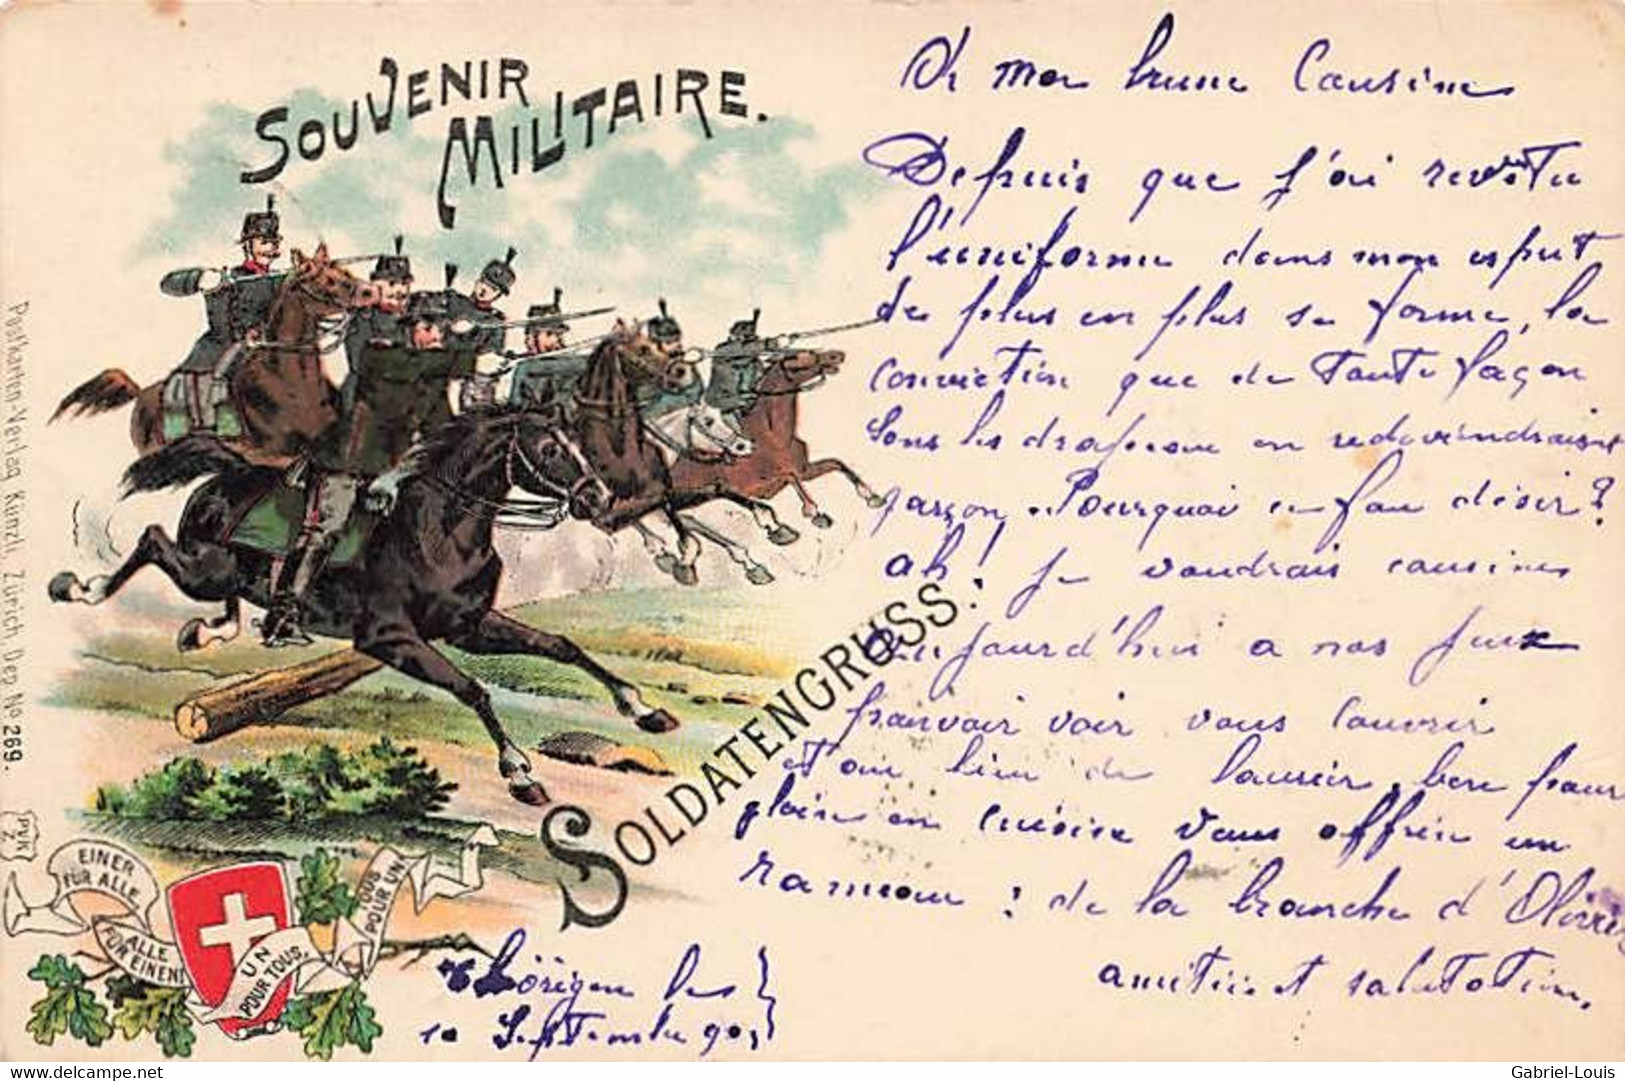 SOUVENIR
MILITAIRE.
SOLDATENGRUSS.
Postkarten-Verlag Künzli, Zürich, Dep. No 269.
PVK
Z
EINER
FÜR ALLE,
ALLE
FÜR EINEN!
UN
POUR TOUS,
TOUS
POUR UN!
Oh ma brune Cousine
Depuis que j'ai revêtu
l'uniforme dans mon esprit
de plus en plus se forme, la
conviction que de toute façon
Sous les drapeau on redeviendraient
garçon. Pourquoi ce fou désir?
ah! je voudrais cousine
Aujourd'hui a nos jeux
pouvoir voir vous couvrir
et au lieu de laurier, bon pour
plaire en cuisine vous offrir un
rameau: de la branche d'Olivier
amitié et salutation.
Thörigen les
10 Septembre 90
Gabriel-Louis